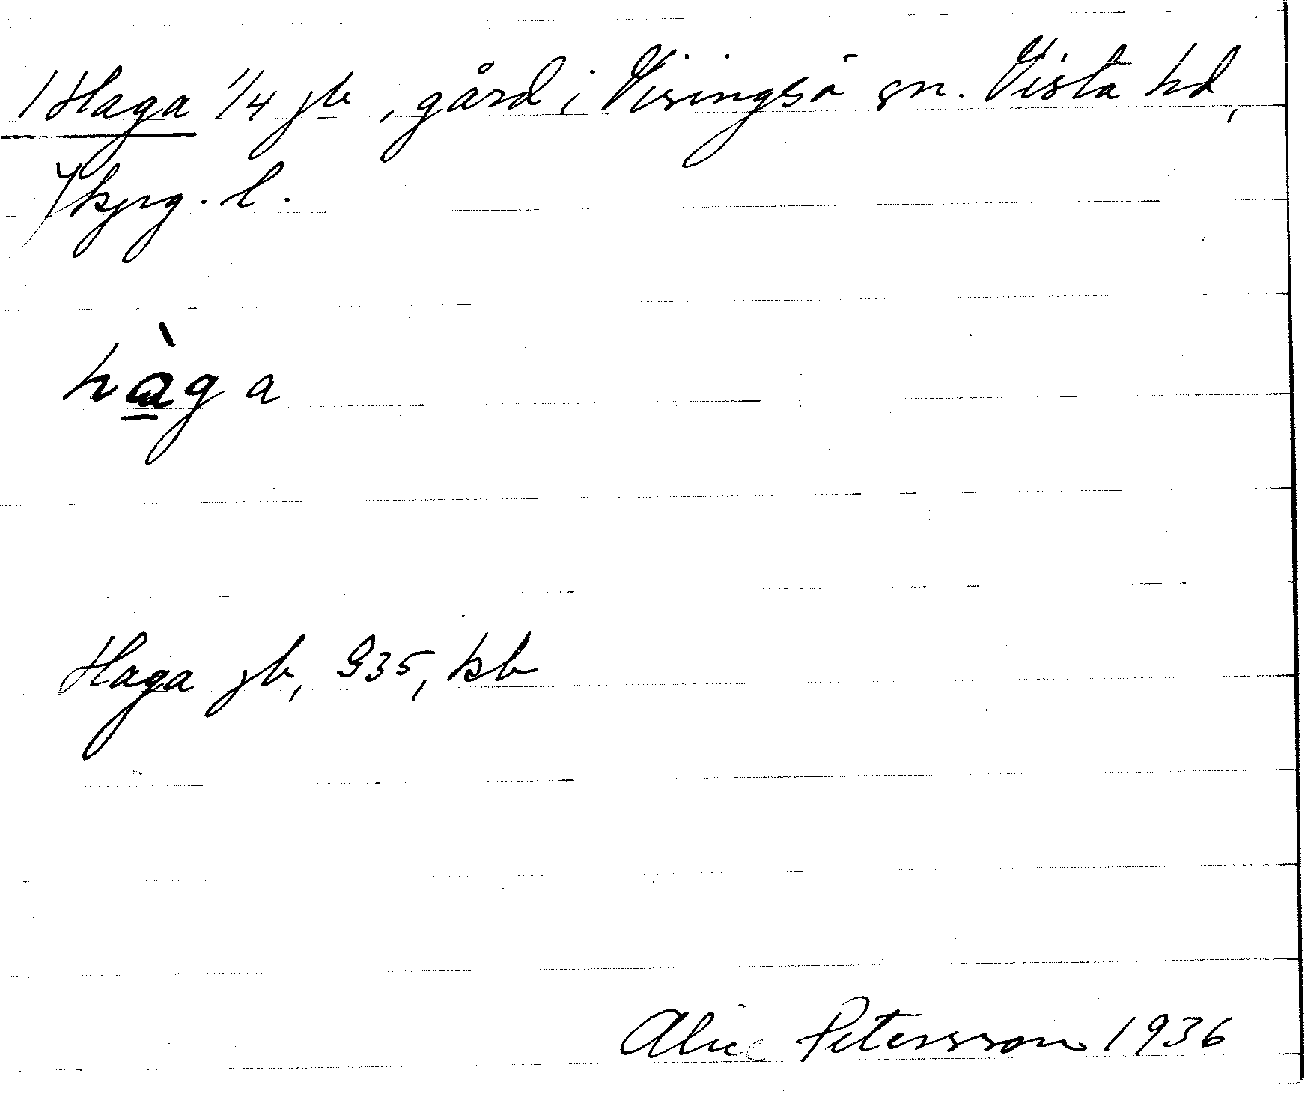 1 Haga 1/4 jb, gård i Visingsö sn. Vista hd,
Jkpg. l.
hàga
Haga jb, G35, kb
Alice Petersson 1936